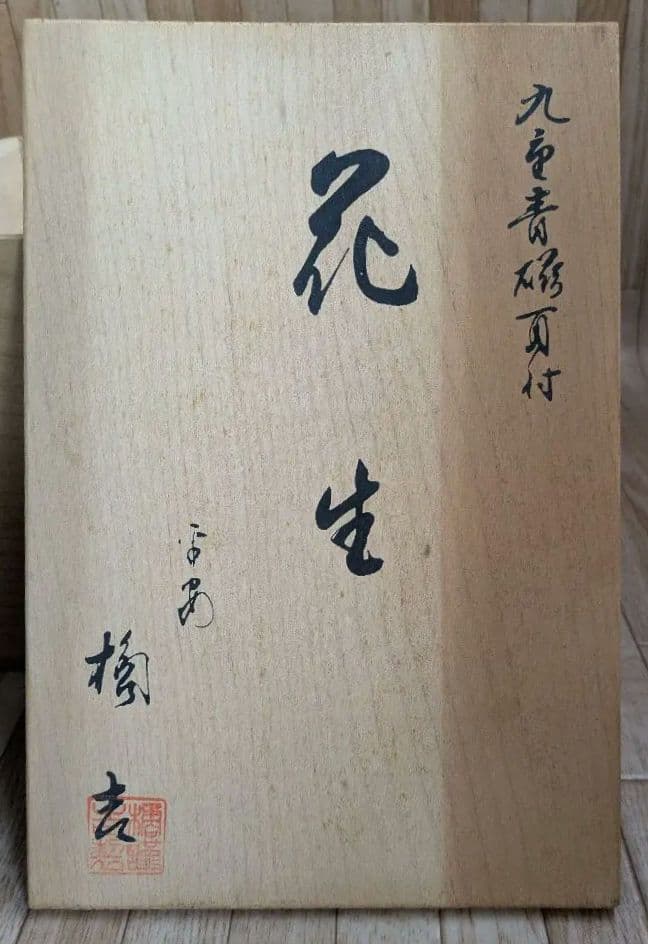 九重青磁耳付
花生
平安
橘吉